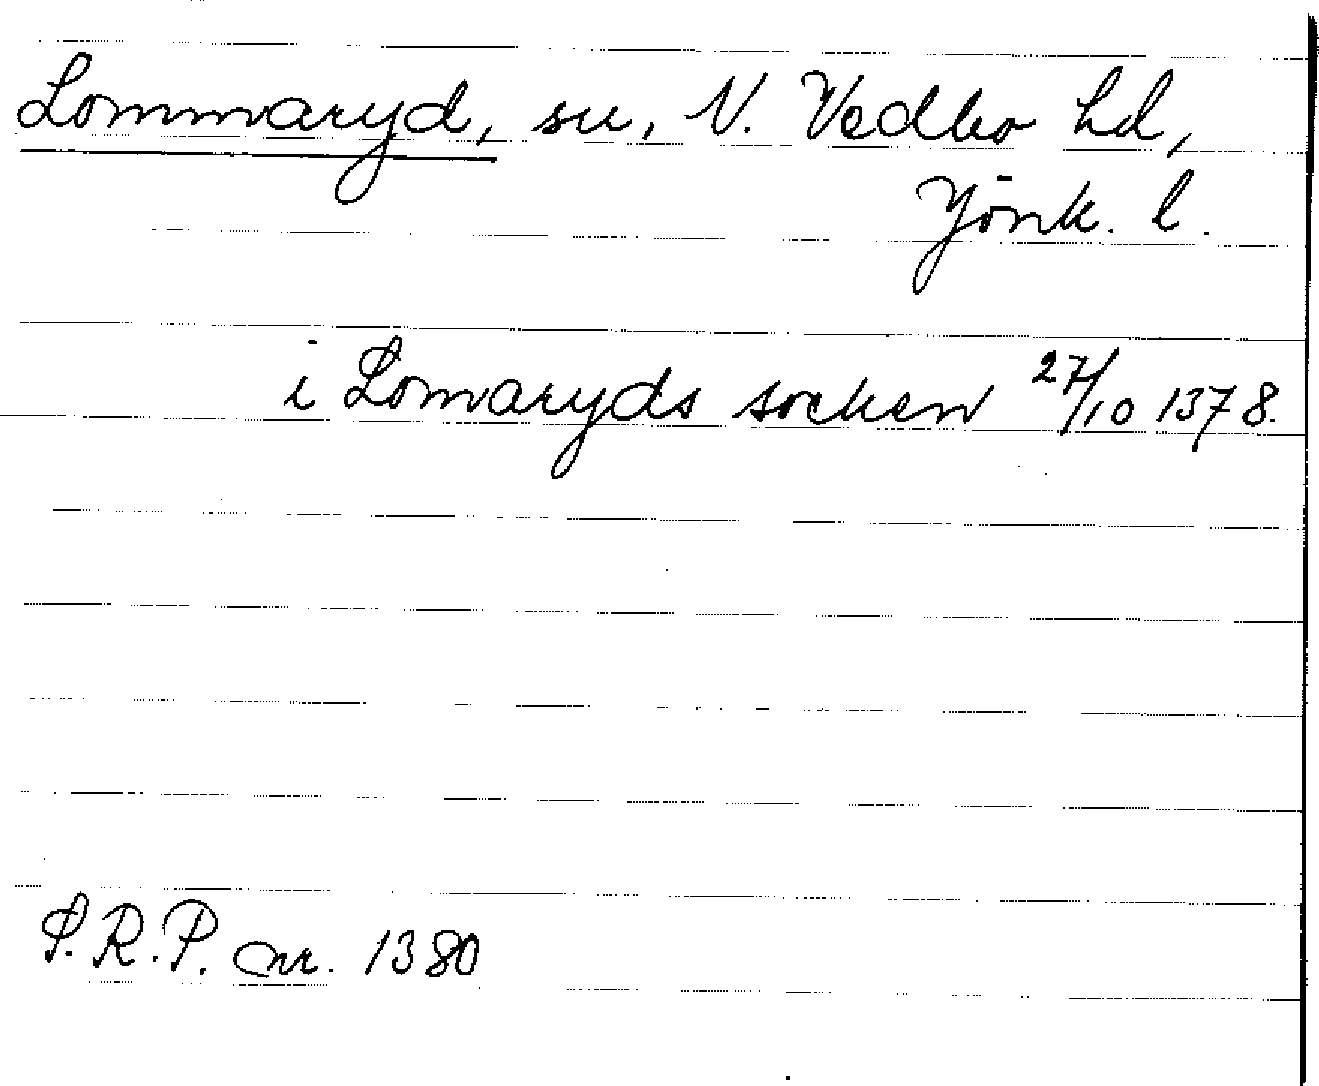 Lommaryd, sn, N. Vedbo hd,
Jönk. l.
i Lomaryds socken 27/10 1378.
S.R.P. nr. 1380